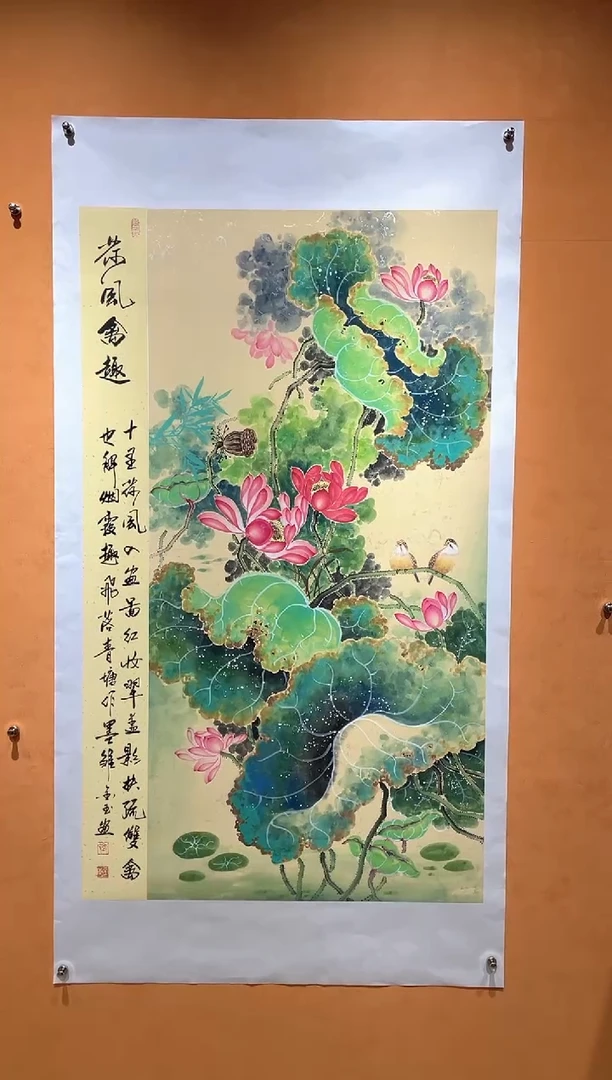 荷風禽趣
十里荷風入畫圖紅妝翠蓋影扶疏雙禽
也解烟霞趣飛落青塘作墨雛金玉畫